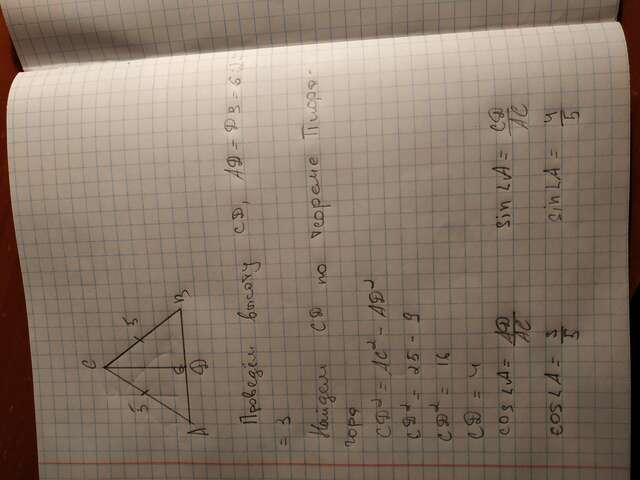 C
5 5
A B
6
D
Проведём высоту CD, AD = DB = 6:2=
= 3
Найдем CD по теореме Пифа-
гора
CD² = AC² - AD²
CD² = 25 - 9
CD² = 16
CD = 4
cos∠A = AD/AC sin∠A = CD/AC
cos∠A = 3/5 sin∠A = 4/5